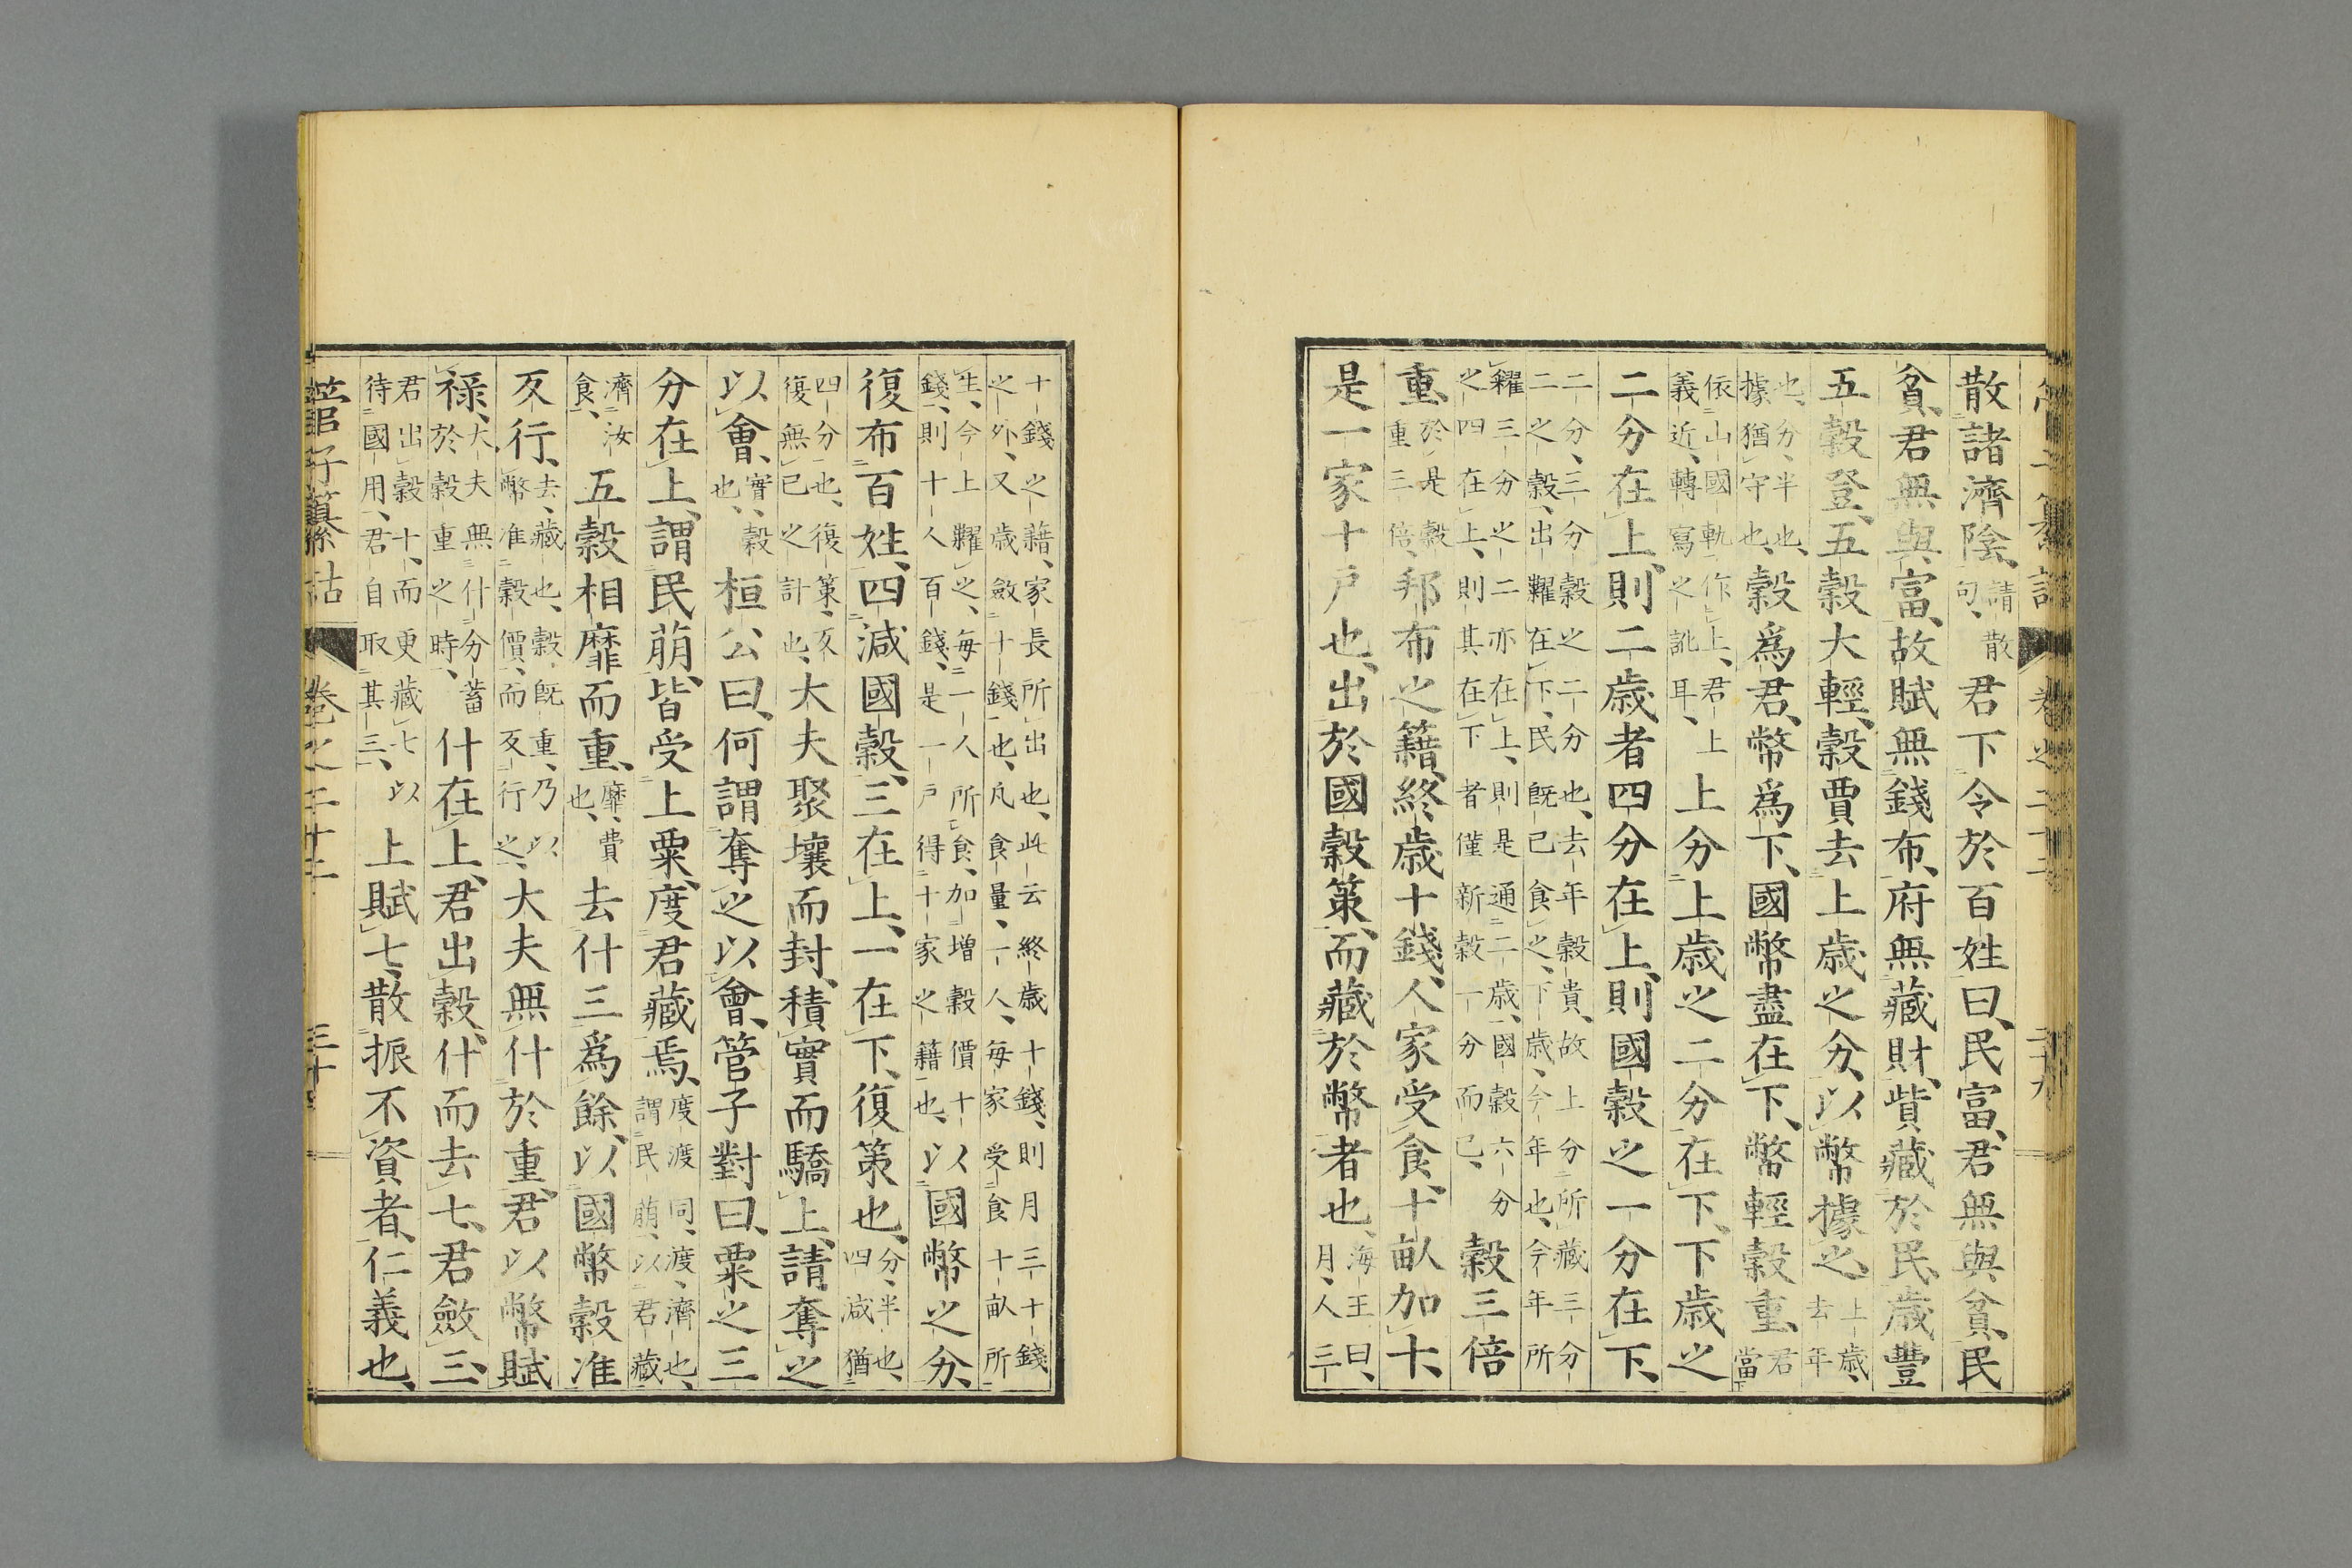 散諸濟陰、請散句、君下令於百姓曰、民富、君無與貧、民
貧、君無與富、故賦無錢布、府無藏財、貲藏於民、歳豐
五穀登、五穀大輕、穀賈去上歳之分、以幣據之、上歳、去年
也、分、半也、據猶守也、穀爲君、幣爲下、國幣盡在下、幣輕穀重、君當下
依山國軌作上、君上義近、轉寫之訛耳、上分上歳之二分在下、下歳之
二分在上、則二歳者四分在上、則國穀之一分在下、
二分、三分穀之二分也、去年穀貴、故上分所藏三分
二之穀、出糶在下、民既已食之、下歳、今年也、今年所
糴三分之二亦在上、則是通二歳、國穀六分
之四在上、則其在下者僅新穀一分而已、穀三倍
重、於是穀重三倍、邦布之籍、終歳十錢、人家受食、十畝加十、
是一家十戸也、出於國穀策、而藏於幣者也、海王曰、月、人三
十錢之藉、家長所出也、此云終歳十錢、則月三十錢
之外、又歳斂十錢也、凡食量、一人、毎家受食十畝所
生、今上糶之、毎一人所食、加増穀價十
錢、則十人百錢、是一戸得十家之籍也、以國幣之分、
復布百姓、四減國穀、三在上、一在下、復策也、分、半也、四減猶
四分也、復策、反復無已之計也、大夫聚壤而封、積實而驕上、請奪之
以會、實、穀也、桓公曰、何謂奪之以會、管子對曰、粟之三
分在上、謂民萠、皆受上粟、度君藏焉、度渡同、渡、濟也、謂民萠、以君藏
濟汝食、五穀相靡而重、靡、費也、去什三爲餘、以國幣穀准
反行、去、藏也、穀既重、乃以幣准穀價、而反行之、大夫無什於重、君以幣賦
祿、大夫無什分蓄於穀重之時、什在上、君出穀、什而去七、君斂三、
君出穀十、而更藏七以待國用、君自取其三、上賦七、散振不資者、仁義也、
管子纂詁 卷之二十二